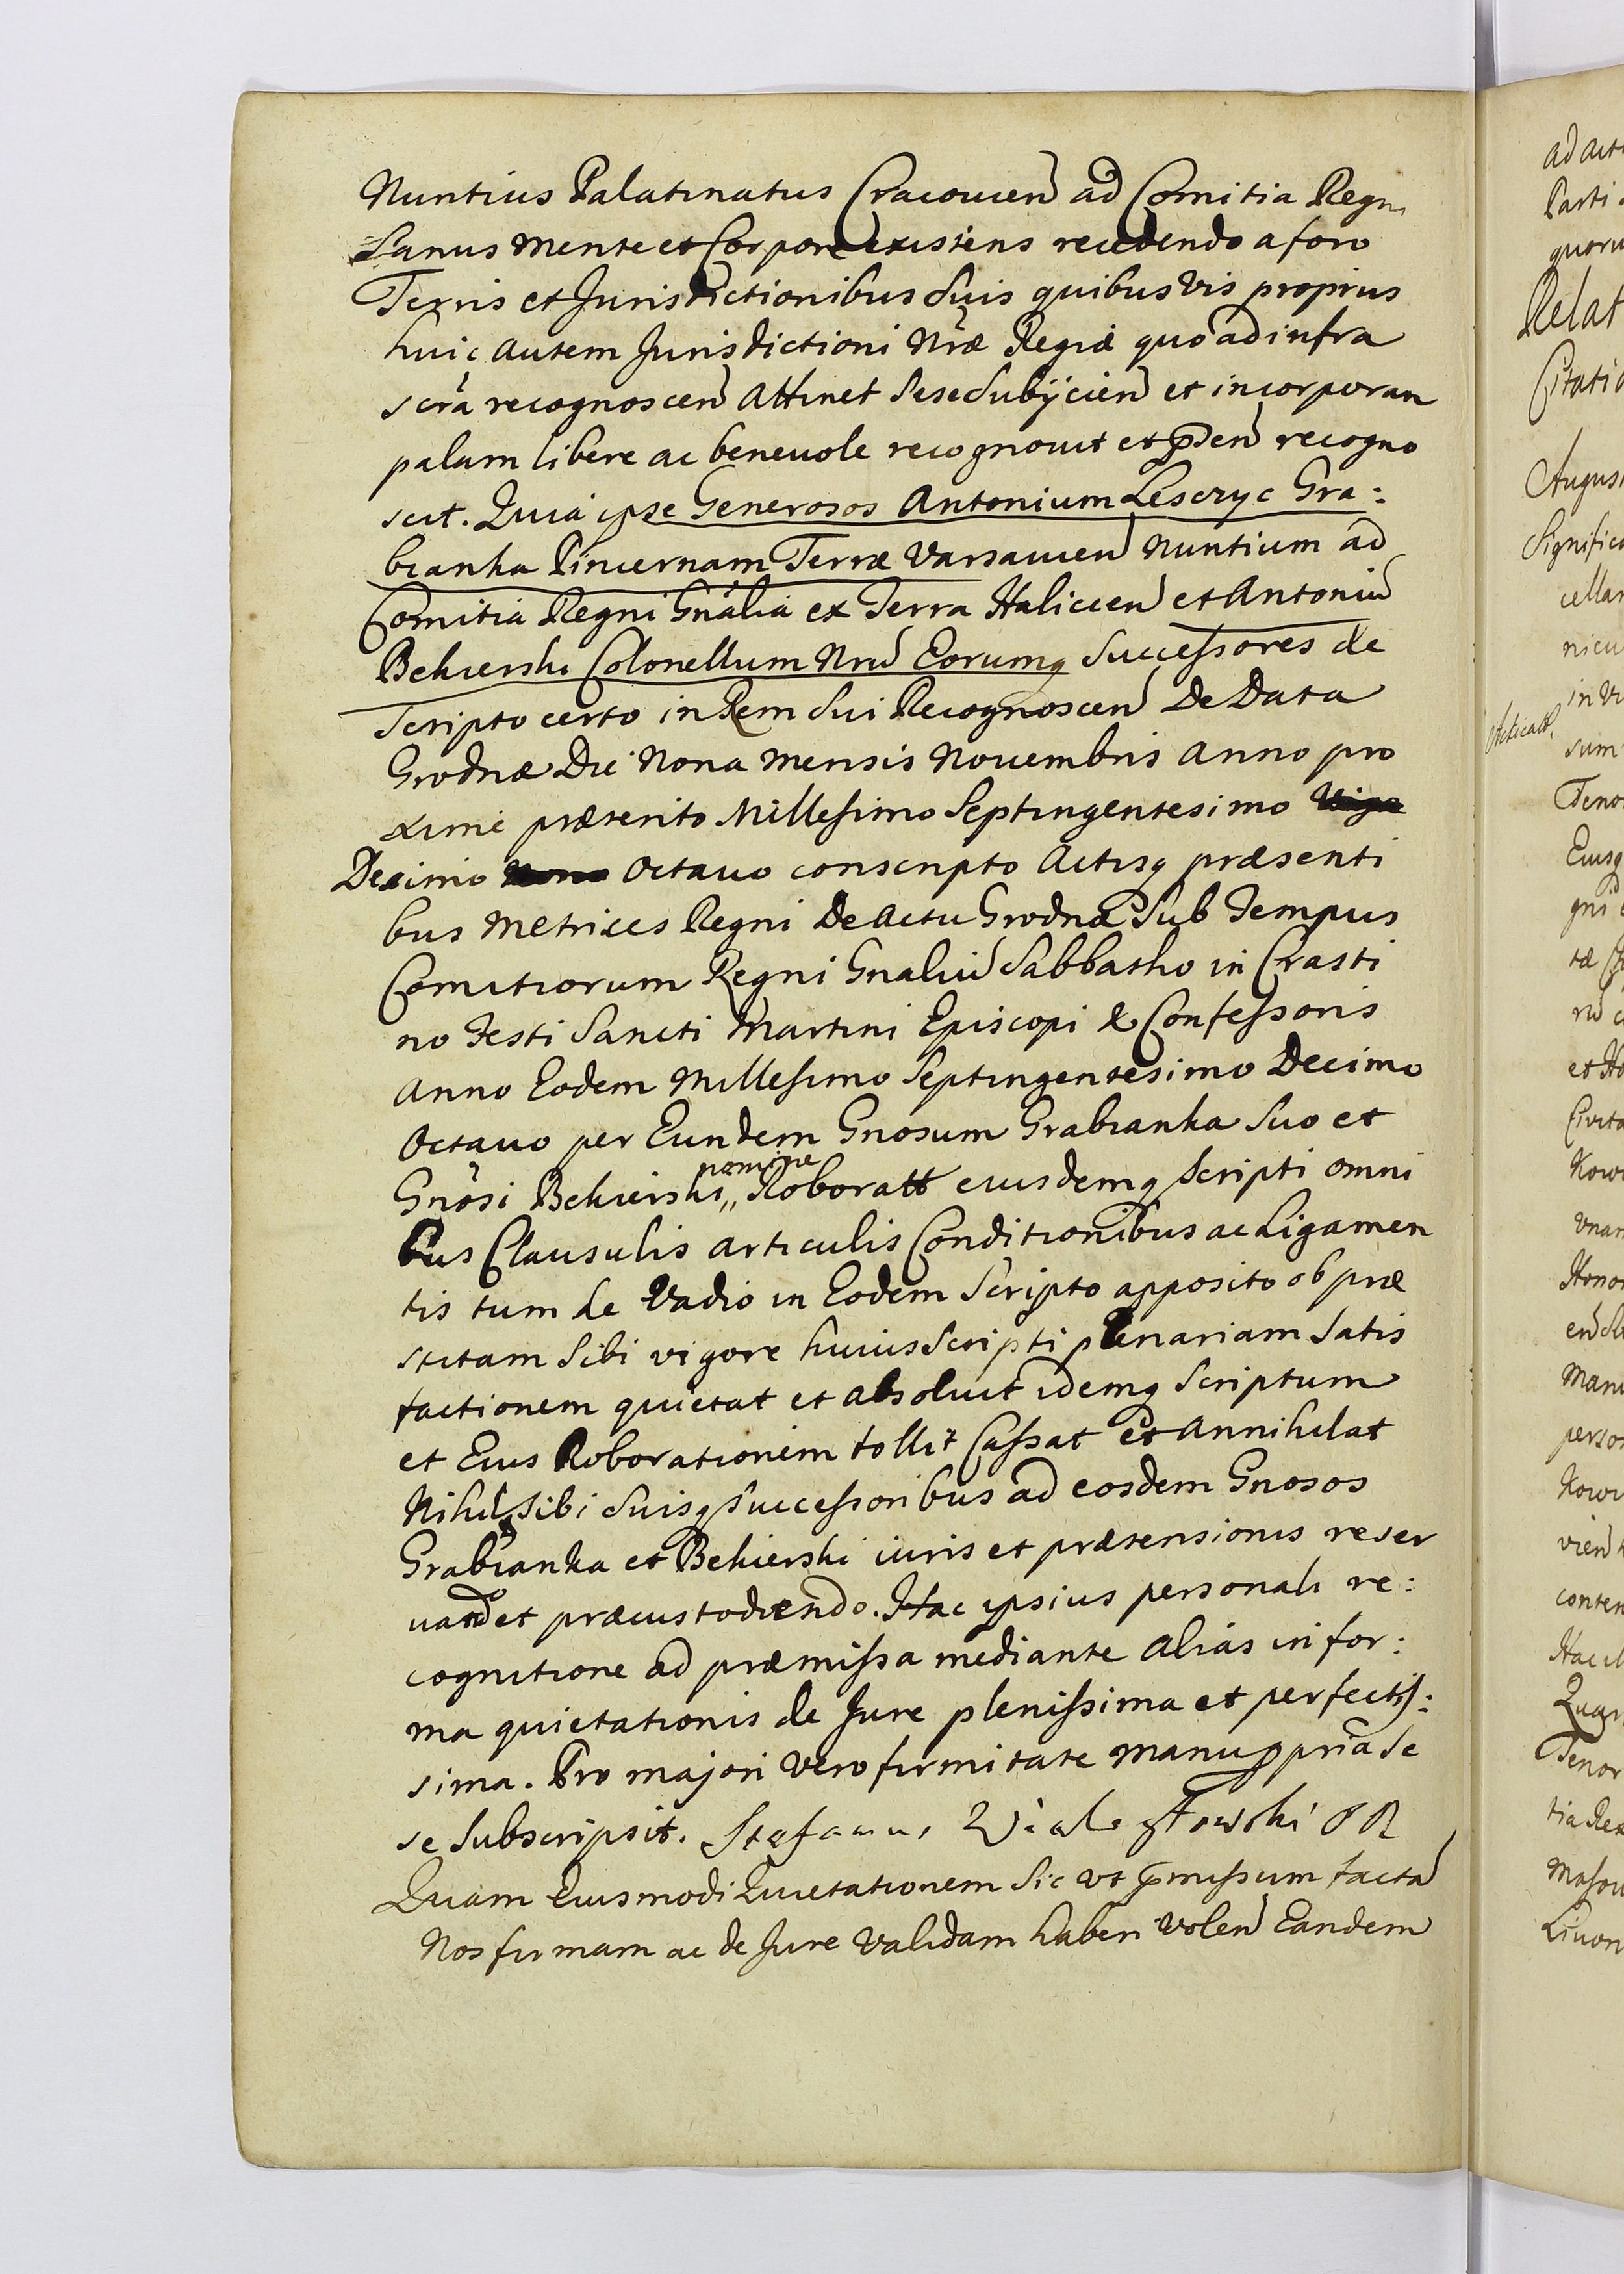 Nuntius Palatinatus Cracouien ad Comitia Regni
Sanus mente et Corpore existens recedendo a foro
Terris et Jurisdictionibus Suis quibusvis proprius
huic autem Jurisdictioni Nræ Regiæ quo ad infra
scra recognoscen Attinet Sese Subijcien et incorporan
palam libere ac beneuole recognouit et pden recogno
scit. Quia ipse Generosos Antonium Leszczyc Gra:
bianka Pincernam Terræ Varsauien Nuntium ad
Comitia Regni Gnalia ex Terra Halicien et Antoniu
Bekierski Colonellum Nru Eorumq Successores de
Scripto certo in Rem Sui Recognoscen De Data
Grodnæ Die Nona Mensis Nouembris Anno pro
xime præterito Millesimo Septingentesimo
Decimo Octauo conscripto Actisq præsenti
bus Metrices Regni De Actu Grodnæ Sub Tempus
Comitiorum Regni Gnaliu Sabbatho in Crasti
no Festi Sancti Martini Episcopi & Confessoris
Anno Eodem Millesimo Septingentesimo Decimo
Octauo per Eundem Gnosum Grabianka Suo et
Gnosi Bekierski nomine Roboratt eiusdemq Scripti omni
bus Clausulis articulis Conditionibus ac Ligamen
tis tum de Vadio in Eodem Scripto apposito ob præ
stitam Sibi vigore huius Scripti plenariam Satis
factionem quietat et absoluit idemq Scriptum
et Eius Roborationem tollit Cassat et Annihilat
Nihil Sibi Suisq Successoribus ad eosdem Gnosos
Grabianka et Bekierski iuris et prætensionis reser
uando et præcustodiendo. Hac ipsius personali re:
cognitione ad præmissa mediante alias in for:
ma quietationis de Jure plenissima et perfectis:
sima. Pro majori vero firmitate manu ppria Se
se Subscripsit. Stefanus
Quam Eiusmodi Quietationem Sic ut pmissum facta
Nos firmam ac de Jure Validam haberi Volen Eandem
Parti
Relat